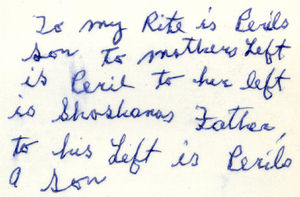 To my Rite is Perils
son to mothers Left
is Peril to her left
is Shoskanas Father,
to his Left is Perils
a son